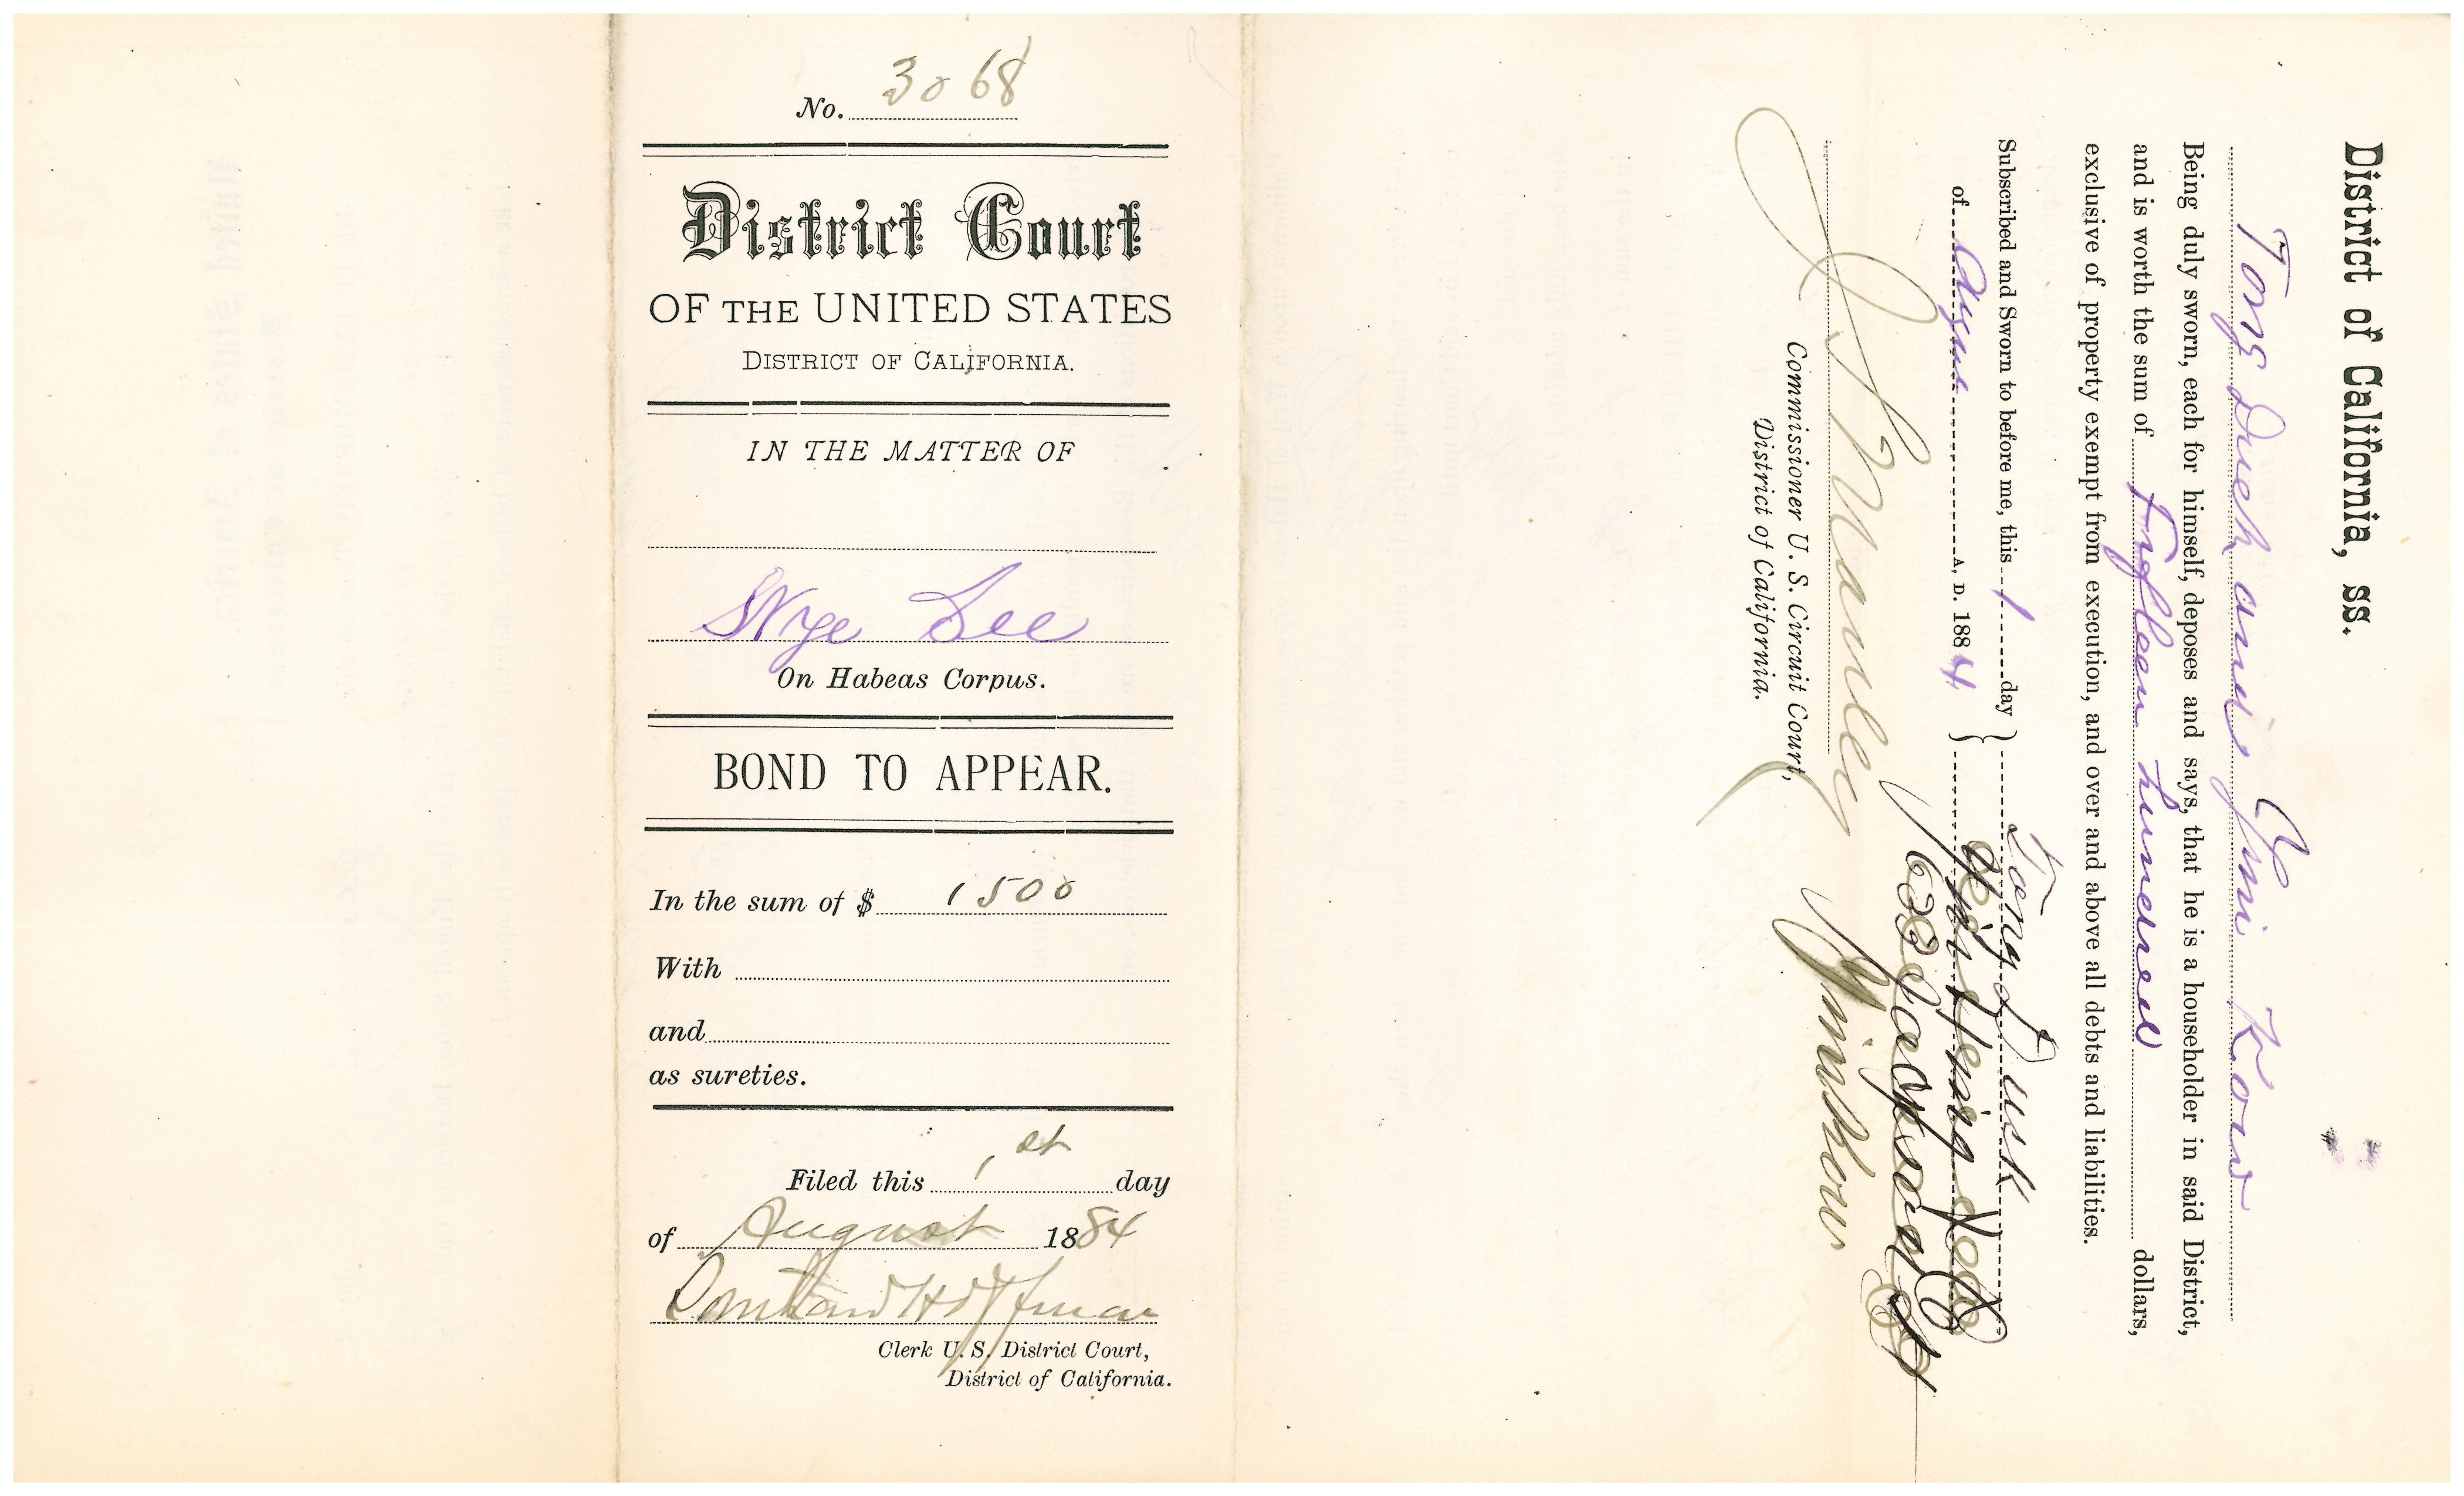 No. 3068
District Court
OF THE UNITED STATES
DISTRICT OF CALIFORNIA.
IN THE MATTER OF
Nye Lee
On Habeas Corpus.
BOND TO APPEAR.
In the sum of $ 1500
With
and
as sureties.
Filed this 1st day
of August 1884
Hoffman
Clerk U. S. District Court,
District of California.
District of California, ss.
Tong Duck and Yimi Kow
Being duly sworn, each for himself, deposes and says, that he is a householder in said District,
and is worth the sum of Fifteen hundred dollars,
exclusive of property exempt from execution, and over and above all debts and liabilities.
Subscribed and Sworn to before me, this 1 day
of August A. D. 1884
Tong Duck
632 Jackson St
J. S. Manley
Commissioner U. S. Circuit Court,
District of California.